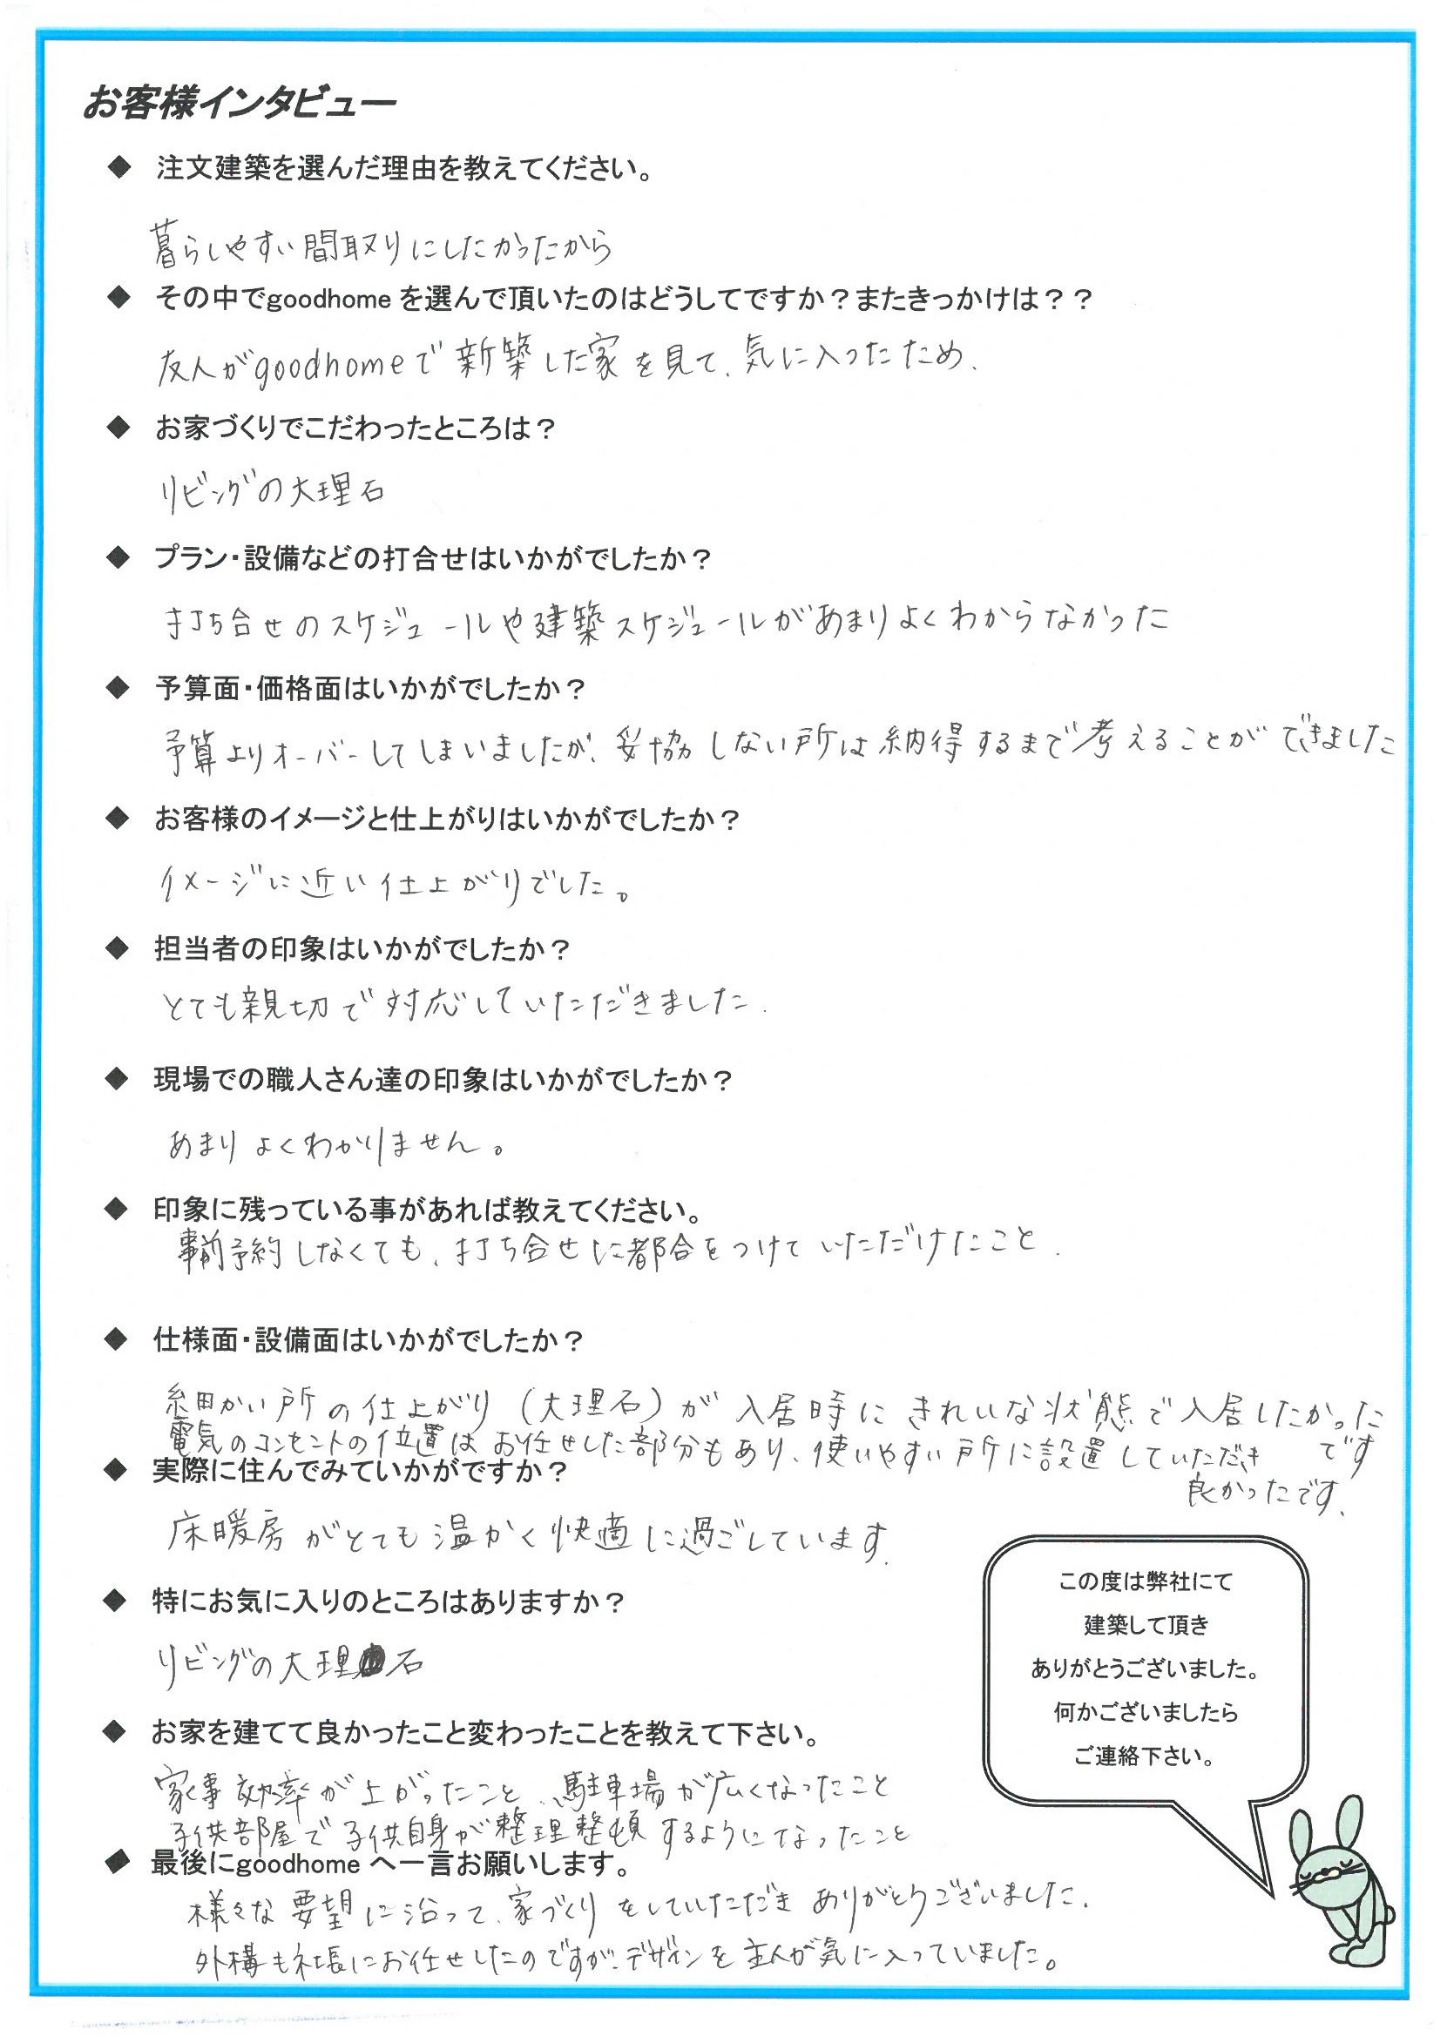 お客様インタビュー
◆ 注文建築を選んだ理由を教えてください。
暮らしやすい間取りにしたかったから
◆ その中でgoodhomeを選んで頂いたのはどうしてですか？またきっかけは？？
友人がgoodhomeで新築した家を見て、気に入ったため.
◆ お家づくりでこだわったところは？
リビングの大理石
◆ プラン・設備などの打合せはいかがでしたか？
打ち合せのスケジュールや建築スケジュールがあまりよくわからなかった
◆ 予算面・価格面はいかがでしたか？
予算よりオーバーしてしまいましたが、妥協しない所は納得するまで考えることができました
◆ お客様のイメージと仕上がりはいかがでしたか？
イメージに近い仕上がりでした。
◆ 担当者の印象はいかがでしたか？
とても親切で対応していただきました.
◆ 現場での職人さん達の印象はいかがでしたか？
あまりよくわかりません。
◆ 印象に残っている事があれば教えてください。
事前予約しなくても、打ち合せに都合をつけていただけたこと.
◆ 仕様面・設備面はいかがでしたか？
細かい所の仕上がり（大理石）が入居時にきれいな状態で入居したかった
です
電気のコンセントの位置はお任せした部分もあり、使いやすい所に設置していただき
良かったです.
◆ 実際に住んでみていかがですか？
床暖房がとても温かく快適に過ごしています.
◆ 特にお気に入りのところはありますか？
リビングの大理石
◆ お家を建てて良かったこと変わったことを教えて下さい。
家事効率が上がったこと、駐車場が広くなったこと
子供部屋で子供自身が整理整頓するようになったこと
◆ 最後にgoodhomeへ一言お願いします。
様々な要望に沿って、家づくりをしていただきありがとうございました.
外構も社長にお任せしたのですが、デザインを主人が気に入っていました。
この度は弊社にて
建築して頂き
ありがとうございました。
何かございましたら
ご連絡下さい。